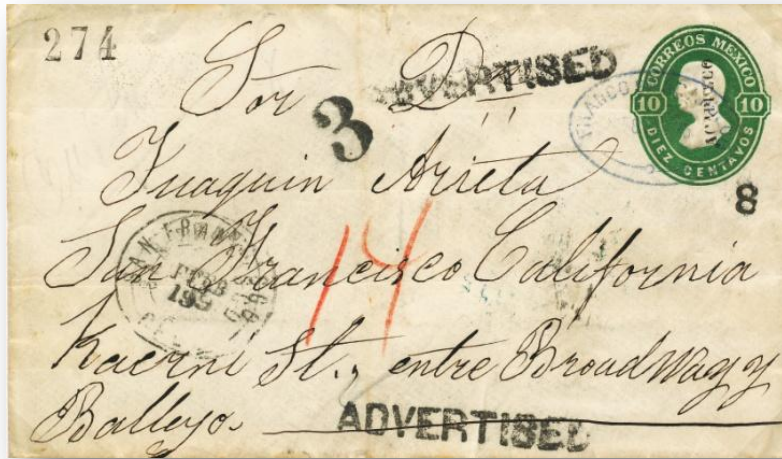 274
Sor Dn
ADVERTISED
CORREOS MEXICO
10 10
DIEZ CENTAVOS
ACAPULCO
FRANCO
3
8
Juaquin Arieta
San Francisco California
14
SAN FRAN
FEB
Kaerni St., entre Broadway y
Balleyo.
ADVERTISED